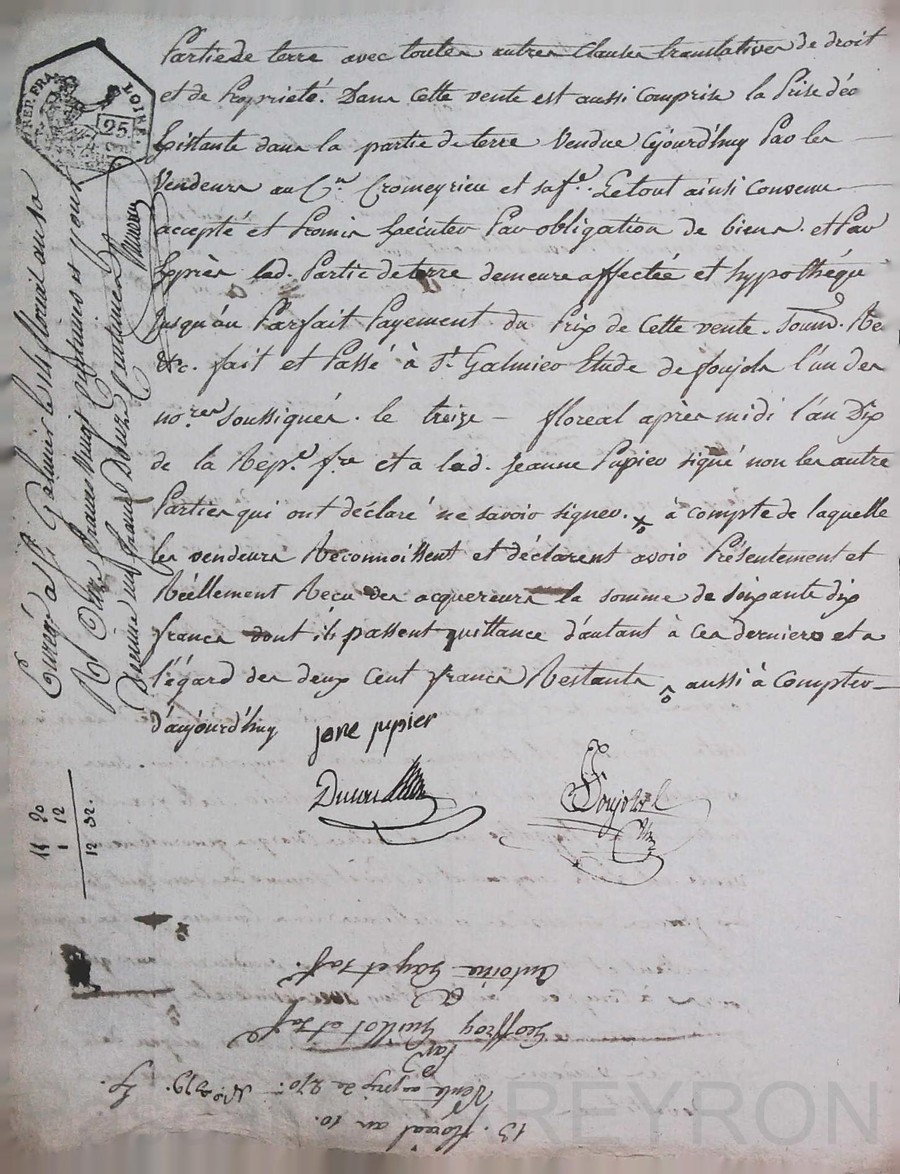 Partie de terre avec toutes autres clauses translatives de droit
et de Propriété. Dans Cette vente est aussi Comprise la Prise déo
Existante dans la partie de terre Vendue Cejourd'huy Par les
Vendeurs au C.en Cromeyrieu et sa f.e. Le tout ainsi convenu
accepté et Promis Exécuter Par obligation de biens. et Par
Exprès lad. Partie de terre demeure affectée et hypothéqué
Jusqu'au Parfait Payement du Prix de Cette vente. Re
&c. fait et Passé à S.t Galmier Etude de foujols l'un des
no.res Soussignés. le treize — floreal après midi l'an Dix
de la Rép.e f.se et a lad. Jeanne Pupier signé non les autres
Parties qui ont déclaré ne savoir signer. à compte de laquelle
les vendeurs Reconnoissent et déclarent avoir Présentement et
Réellement Recu des acquereurs la somme de soixante dix
francs dont ils passent quittance d'autant à ces derniers et a
l'égard des deux Cent francs Restants aussi à Compter
d'aujourd'huy
jane pupier
REP. FRA.
LOIRE
25
Enregé à S.t Galmier le floreal an 10
R Onze francs Vingt Centimes
Douze Centimes
11 20
1 12
12 32.
13. floreal an 10.
Vente au prix de 270.
Par
Geoffroy Guillot et sa f.e
à
Antoine Gay et sa f.e
REYRON